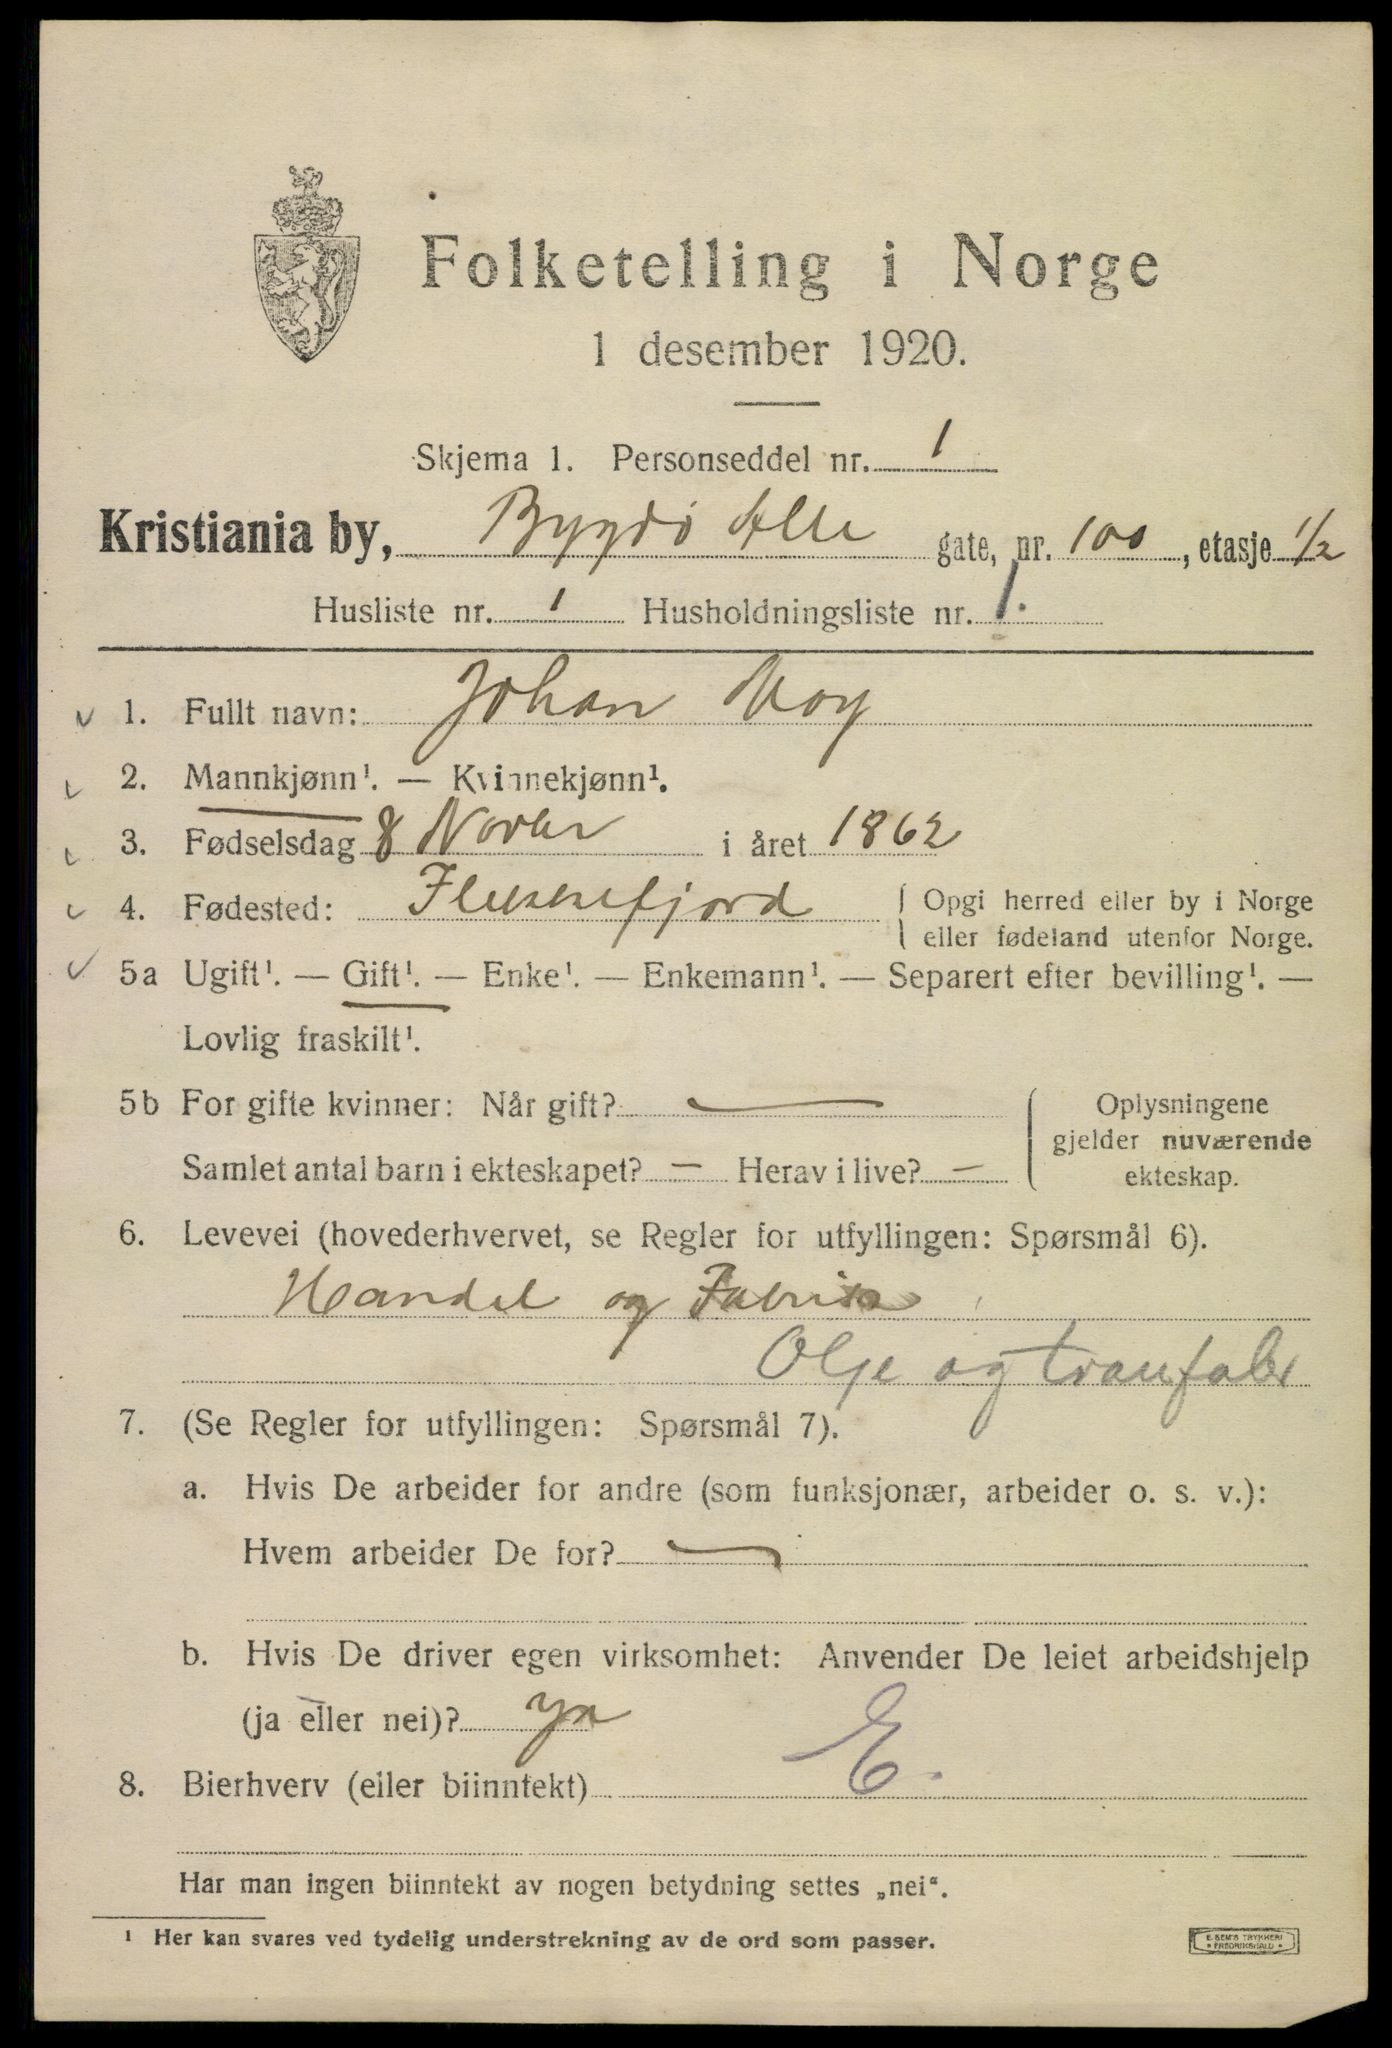 Folketelling i Norge
1 desember 1920.
Skjema 1. Personseddel nr. 1
Kristiania by, Bygdö Alle gate, nr. 100, etasje 1/2
Husliste nr. 1 Husholdningsliste nr. 1.
1. Fullt navn: Johan
2. Mannkjønn¹. — Kvinnekjønn¹.
3. Fødselsdag 8 Novbr i året 1862
4. Fødested: Flekkefjord { Opgi herred eller by i Norge
eller fødeland utenfor Norge.
5a Ugift¹. — Gift¹. — Enke¹. — Enkemann¹. — Separert efter bevilling¹. —
Lovlig fraskilt¹.
5b For gifte kvinner: Når gift? —
Samlet antal barn i ekteskapet? — Herav i live? —
Oplysningene
gjelder nuværende
ekteskap.
6. Levevei (hovederhvervet, se Regler for utfyllingen: Spørsmål 6).
Handel og Fabrik
Olje og tranfabr
7. (Se Regler for utfyllingen: Spørsmål 7).
a. Hvis De arbeider for andre (som funksjonær, arbeider o. s. v.):
Hvem arbeider De for? —
b. Hvis De driver egen virksomhet: Anvender De leiet arbeidshjelp
(ja eller nei)? ja
E.
8. Bierhverv (eller biinntekt)
Har man ingen biinntekt av nogen betydning settes „nei“.
¹ Her kan svares ved tydelig understrekning av de ord som passer.
E. SEM'S TRYKKERI
• FREDRIKSHALD •